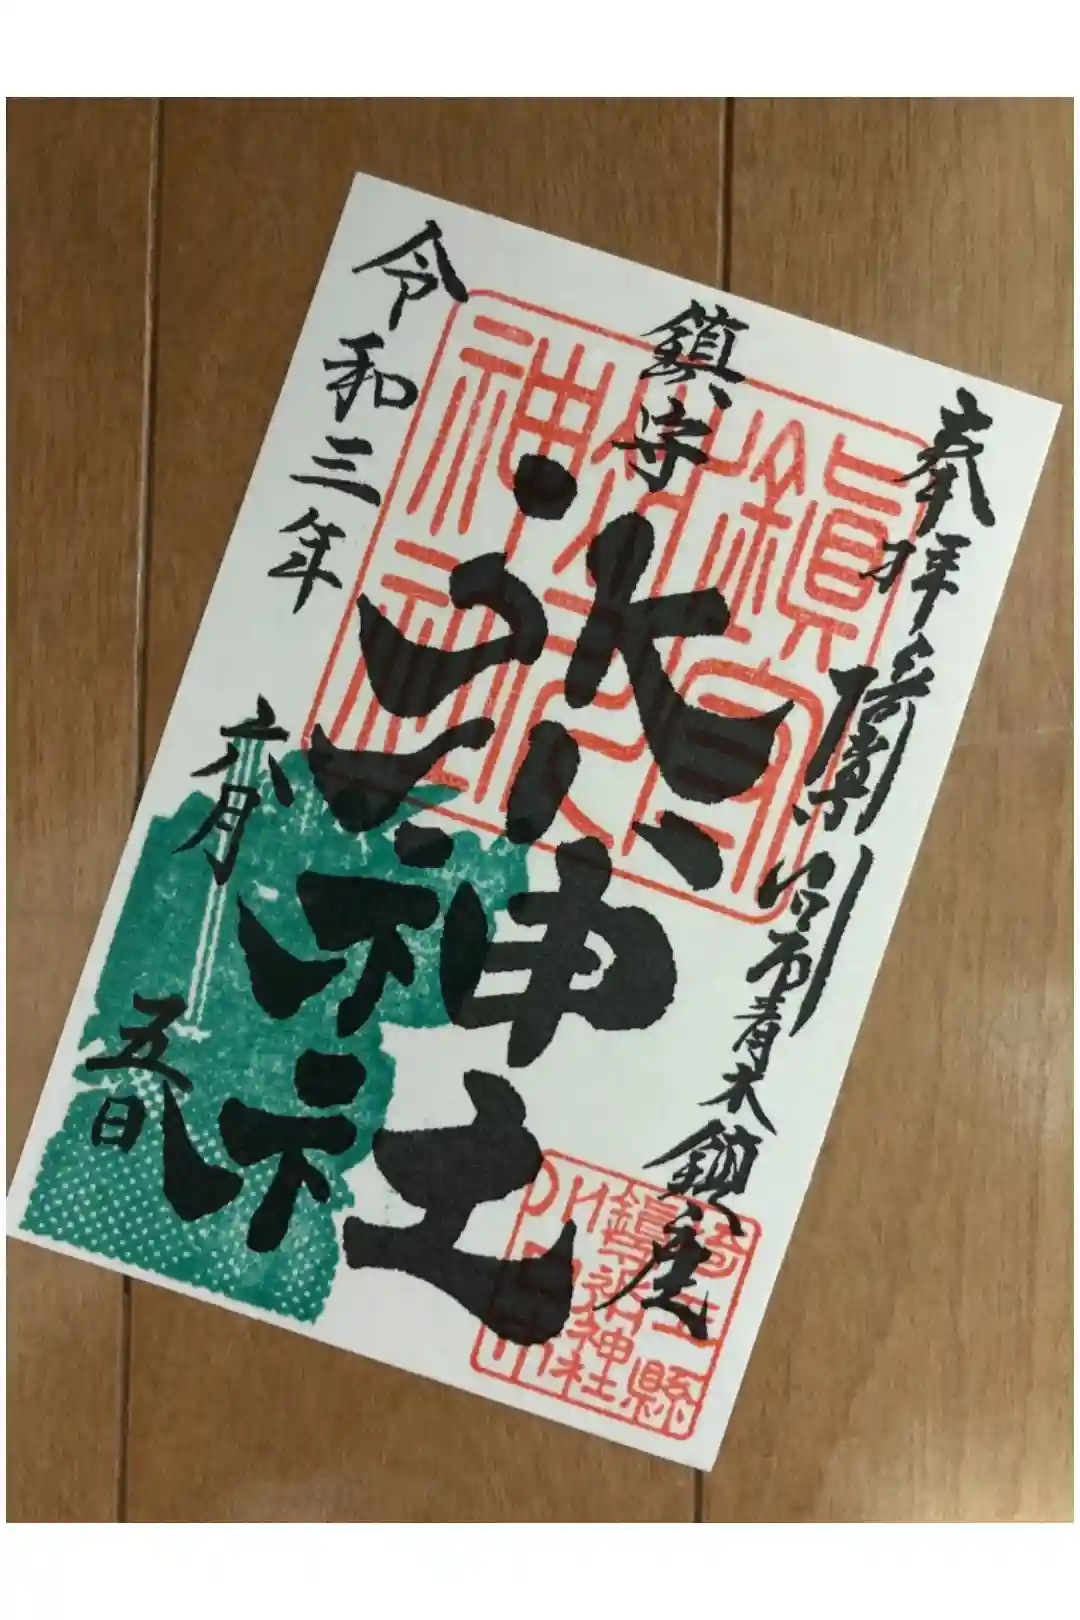 奉拝
川口市青木鎮座
鎮守
氷川神社
令和三年
六月
五日
鎮守氷川神社
埼玉縣
鎮守氷川神社